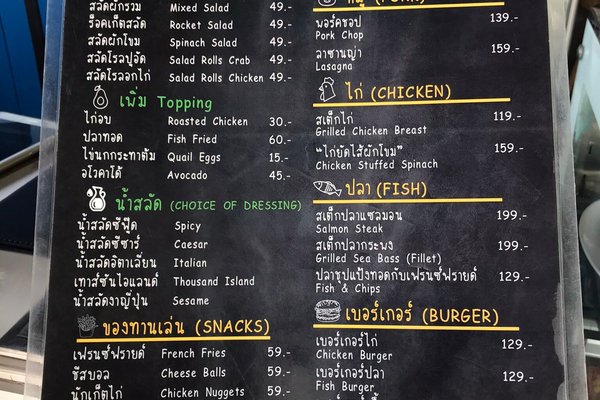 สลัดผักรวม Mixed Salad 49.-
ร็อคเก็ตสลัด Rocket Salad 49.-
สลัดผักโขม Spinach Salad 49.-
สลัดโรลปูอัด Salad Rolls Crab 49.-
สลัดโรลอกไก่ Salad Rolls Chicken 49.-
เพิ่ม Topping
ไก่อบ Roasted Chicken 30.-
ปลาทอด Fish Fried 60.-
ไข่นกกระทาต้ม Quail Eggs 15.-
อโวคาโด้ Avocado 45.-
น้ำสลัด (CHOICE OF DRESSING)
น้ำสลัดซีฟู๊ด Spicy
น้ำสลัดซีซาร์ Caesar
น้ำสลัดอิตาเลี่ยน Italian
เทาส์ซันไอแลนด์ Thousand Island
น้ำสลัดงาญี่ปุ่น Sesame
ของทานเล่น (SNACKS)
เฟรนซ์ฟรายด์ French Fries 59.-
ชีสบอล Cheese Balls 59.-
นักเก็ตไก่ Chicken Nuggets 59.-
พอร์คชอป 139.-
Pork Chop
ลาซานญ่า 159.-
Lasagna
ไก่ (CHICKEN)
สเต็กไก่ 119.-
Grilled Chicken Breast
"ไก่ยัดไส้ผักโขม" 159.-
Chicken Stuffed Spinach
ปลา (FISH)
สเต็กปลาแซลมอน 199.-
Salmon Steak
สเต็กปลากระพง 199.-
Grilled Sea Bass (Fillet)
ปลาชุปแป้งทอดกับเฟรนซ์ฟรายด์ 129.-
Fish & Chips
เบอร์เกอร์ (BURGER)
เบอร์เกอร์ไก่ 129.-
Chicken Burger
เบอร์เกอร์ปลา 129.-
Fish Burger